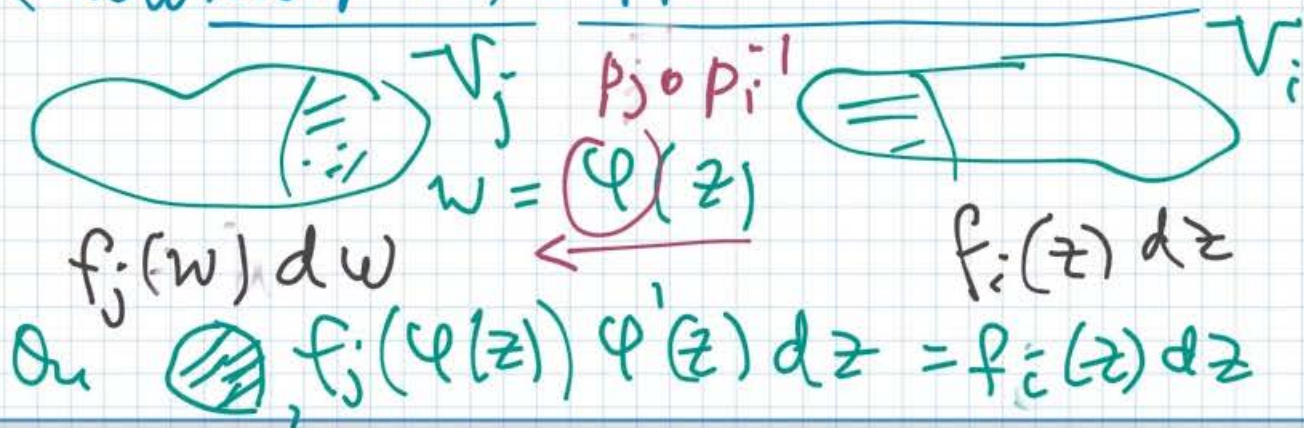 V_j p_j ∘ p_i^{-1} V_i
w = φ(z)
f_j(w) dw f_i(z) dz
On , f_j(φ(z)) φ'(z) dz = f_i(z) dz